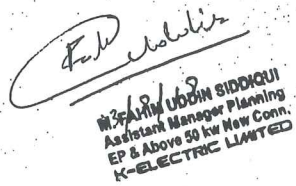 M. FAHIM UDDIN SIDDIQUI
Assistant Manager Planning
EP & Above 50 kw New Conn.
K-ELECTRIC LIMITED